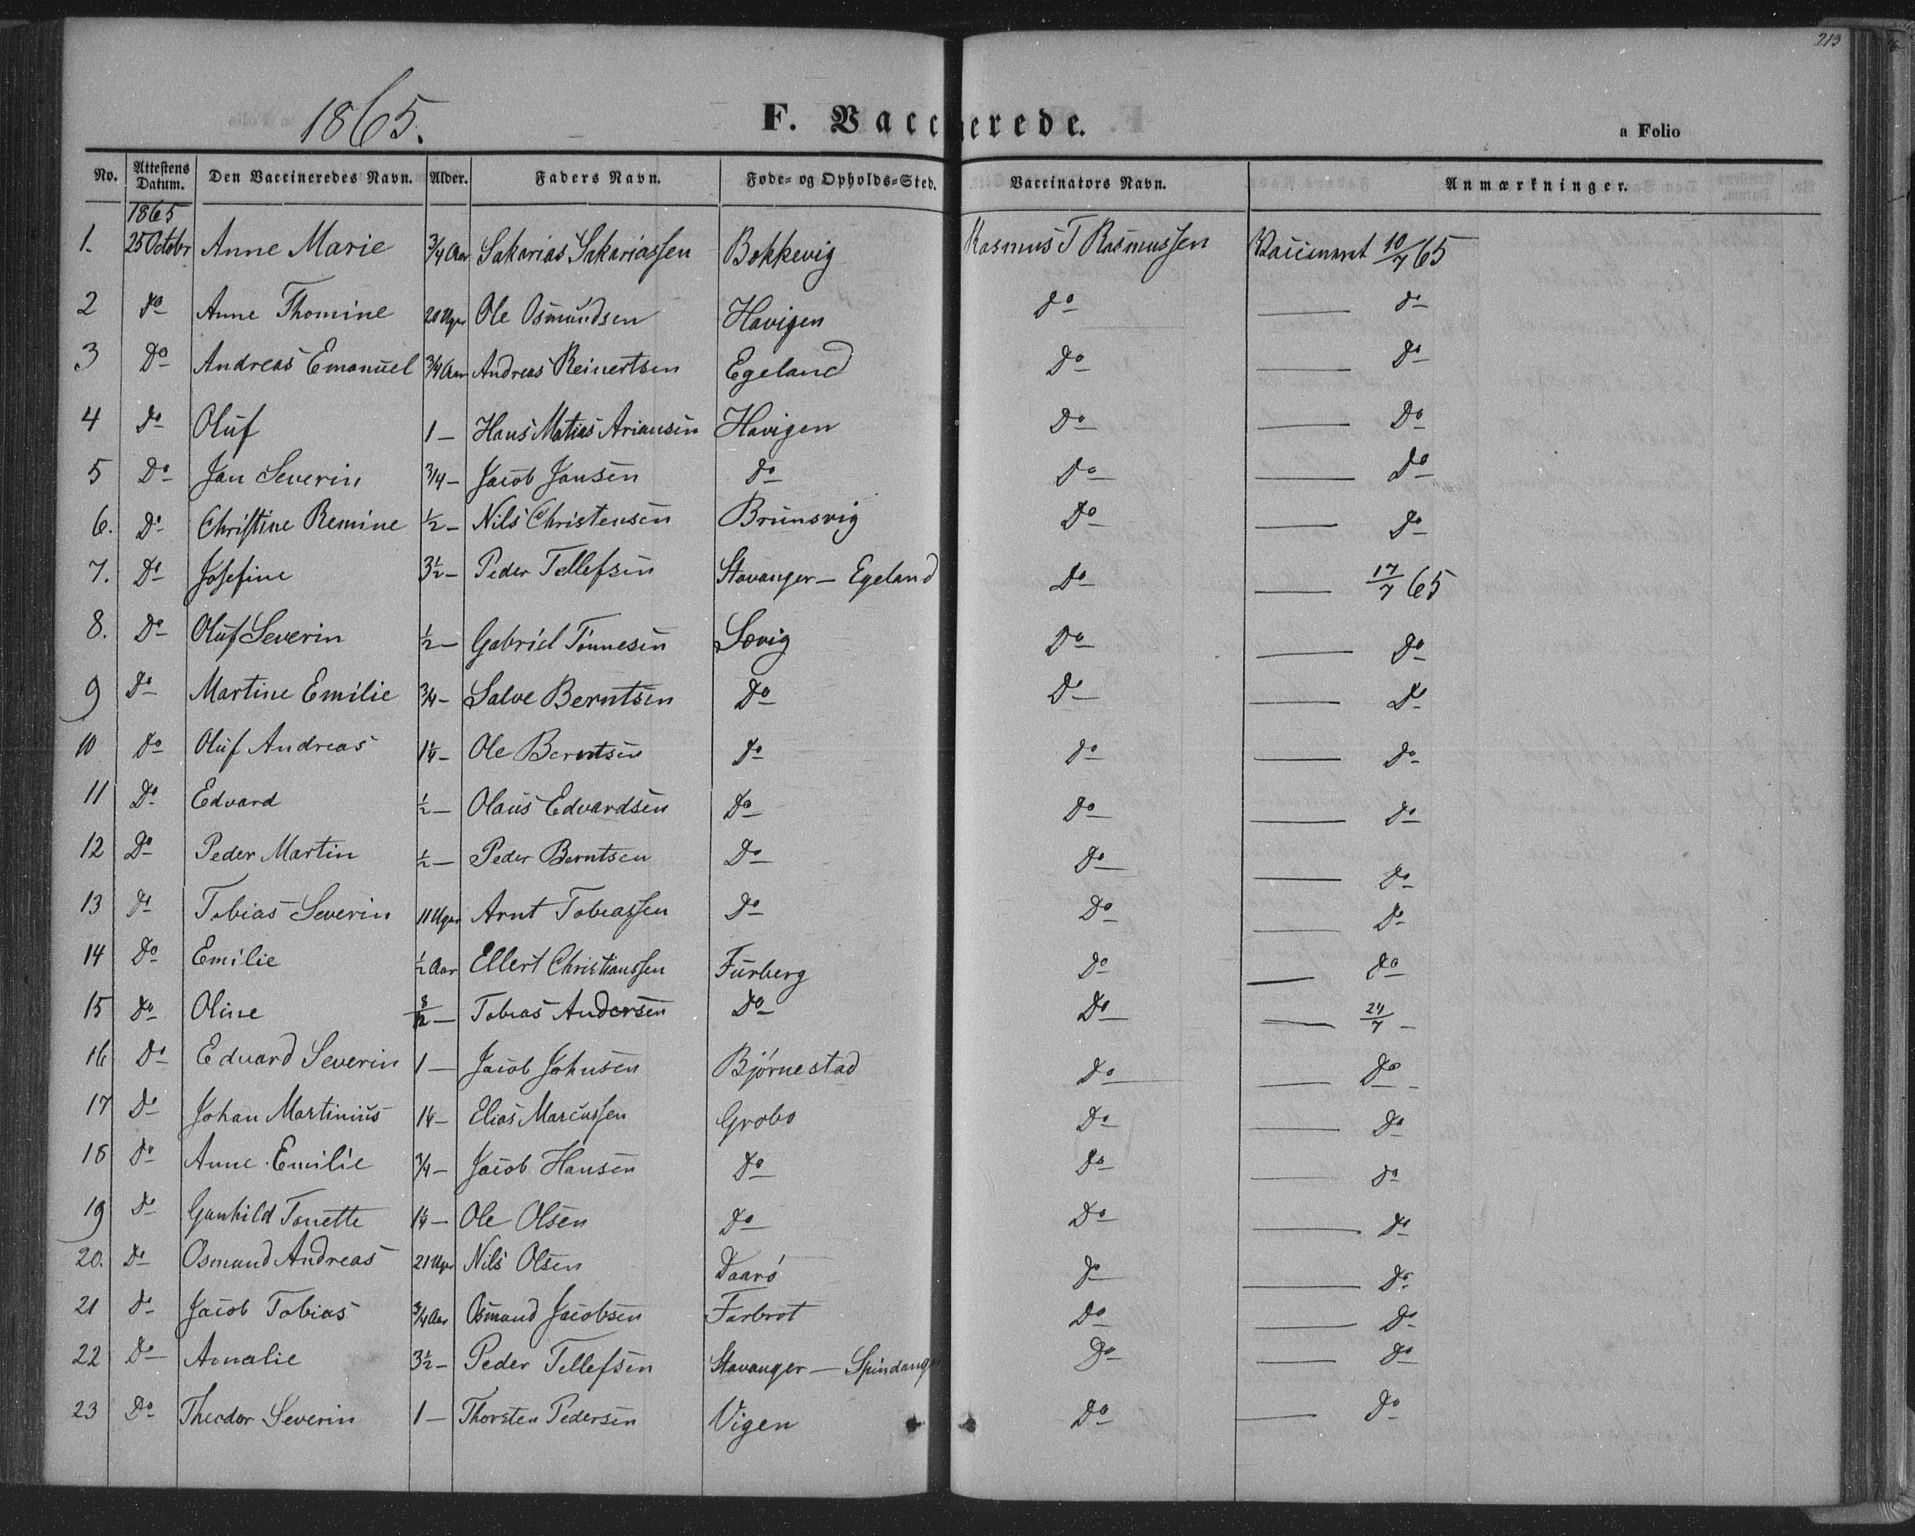 213
1865.
F. Vaccinerede.
a Folio
No. Attestens Datum. Den Vaccineredes Navn. Alder. Faders Navn. Føde- og Opholds-Sted. Vaccinators Navn. Anmærkninger.
1865
1. 25 Octobr Anne Marie 3/4 Aar Sakarias Sakariassen Bokkevig Rasmus T Rasmussen Vaccineret 10/7 65
2 Do Anne Thomine 20 Uger Ole Osmundsen Havigen do — do
3 Do Andreas Emanuel 3/4 Aar Andreas Reinertsen Egeland Do — do
4 Do Oluf 1 — Hans Matias Ariansen Havigen Do — Do
5 Do Jan Severin 3/4 — Jacob Jansen do Do — Do
6. Do Christine Remine 1/2 — Nils Christensen Brunsvig Do — do
7. Do Josefine 3 1/2 — Peder Tellefsen Stavanger — Egeland Do — 17/7 65
8. Do Oluf Severin 1/2 — Gabriel Tønnesen Sævig Do — do
9 Do Martine Emilie 3/4 — Salve Berntsen Do Do — Do
10 Do Oluf Andreas 1 1/4 — Ole Berntsen do do — do
11 Do Edvard 1/2 — Olaus Edvardsen Do do — do
12 Do Peder Martin 1/2 — Peder Berntsen Do do — do
13 do Tobias Severin 11 Uger Arnt Tobiassen Do Do — do
14 Do Emilie 1/2 Aar Ellert Christianssen Furberg Do — do
15 Do Oline 8/12 — Tobias Andersen Do Do — 24/7 —
16 Do Edvard Severin 1 — Jacob Johnsen Bjørnestad Do — Do —
17 Do Johan Martinius 1 1/4 — Elias Marcussen Grobo Do — do
18 Do Anne Emilie 3/4 — Jacob Hansen Do do — do
19 Do Gunhild Tonette 1 1/4 — Ole Olsen do Do — do
20. Do Osmund Andreas 21 Uger Nils Olsen Daarø do — do
21 do Jacob Tobias 3/4 Aar Osmund Jacobsen Farbrot Do — do
22 Do Amalie 3 1/2 — Peder Tellefsen Stavanger — Spindangen Do — do
23 Do Theodor Severin 1 — Thorsten Pedersen Vigen Do — do